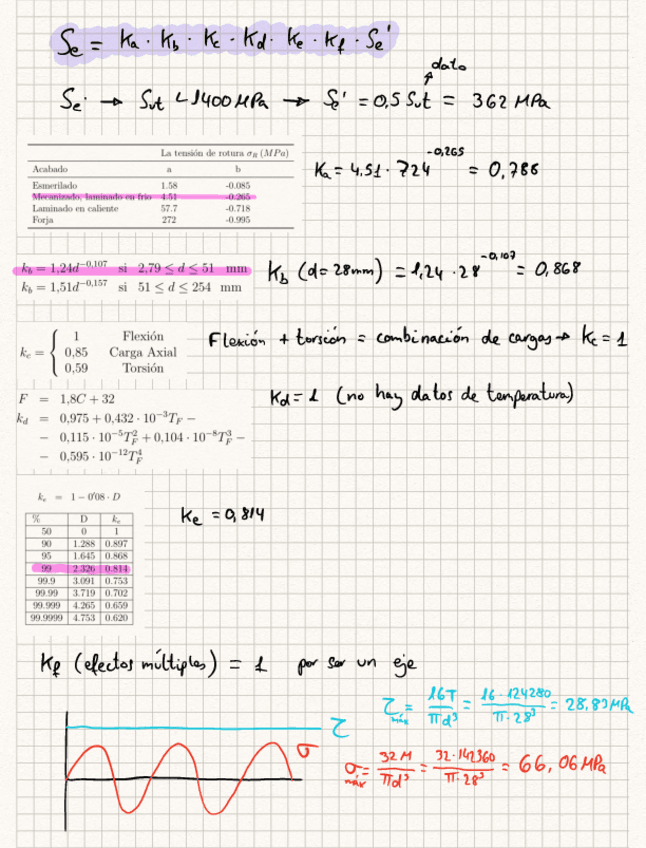 Se = Ka · Kb · Kc · Kd · Ke · Kf · Se'
dato
Se' → Sut < 1400 MPa → Se' = 0,5 Sut = 362 MPa
La tensión de rotura σR (MPa)
Acabado a b
Esmerilado 1.58 -0.085
Mecanizado, laminado en frío 4.51 -0.265
Laminado en caliente 57.7 -0.718
Forja 272 -0.995
Ka = 4,51 · 724^-0,265 = 0,788
kb = 1,24d^-0,107 si 2,79 ≤ d ≤ 51 mm
kb = 1,51d^-0,157 si 51 ≤ d ≤ 254 mm
Kb (d= 28mm) = 1,24 · 28^-0,107 = 0,868
kc = { 1 Flexión
0,85 Carga Axial
0,59 Torsión
Flexión + torsión = combinación de cargas → Kc = 1
F = 1,8C + 32
kd = 0,975 + 0,432 · 10^-3 TF −
− 0,115 · 10^-5 TF^2 + 0,104 · 10^-8 TF^3 −
− 0,595 · 10^-12 TF^4
Kd = 1 (no hay datos de temperatura)
ke = 1 − 0'08 · D
% D ke
50 0 1
90 1.288 0.897
95 1.645 0.868
99 2.326 0.814
99.9 3.091 0.753
99.99 3.719 0.702
99.999 4.265 0.659
99.9999 4.753 0.620
Ke = 0,814
Kf (efectos múltiples) = 1 por ser un eje
τmáx = 16T / πd³ = 16 · 124280 / π · 28³ = 28,83 MPa
τ
σ
σmáx = 32 M / πd³ = 32 · 142360 / π · 28³ = 66,06 MPa